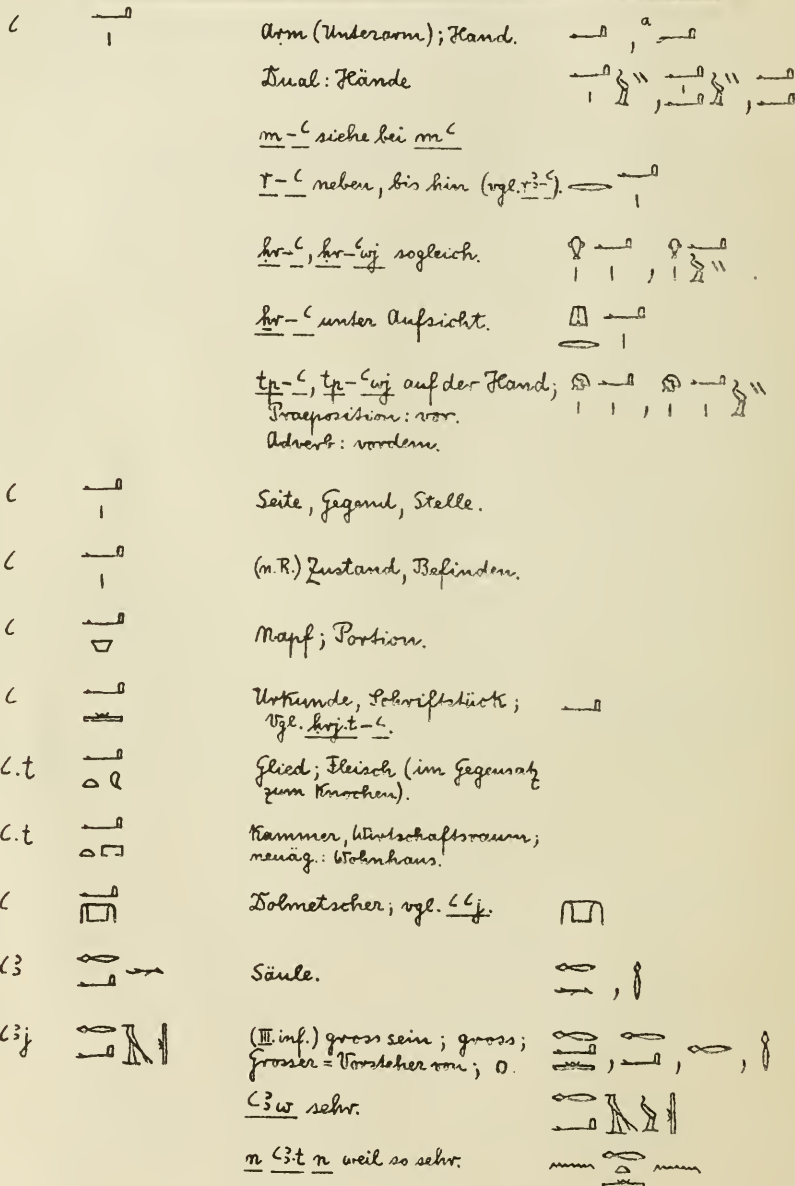 ꜥ 𓂝𓏤 Arm (Unterarm); Hand. 𓂝 , a 𓂝
Dual: Hände
m-ꜥ siehe bei mꜥ
r-ꜥ neben, bis hin (vgl. rꜣ-ꜥ). 𓂋𓂝𓏤
ḥr-ꜥ, ḥr-ꜥwj sogleich. 𓁷𓏤𓂝𓏤 , 𓁷𓏤𓂝𓅱𓏭 .
ẖr-ꜥ unter Aufsicht. 𓌨𓂋𓂝𓏤
tp-ꜥ, tp-ꜥwj auf der Hand; 𓁶𓏤𓂝𓏤 , 𓁶𓏤𓂝𓏤𓅱𓏭
Praeposition: vor.
Adverb: vordem.
ꜥ 𓂝𓏤 Seite, Gegend, Stelle.
ꜥ 𓂝𓏤 (n.R.) Zustand, Befinden.
ꜥ 𓂝𓎺 Napf; Portion.
ꜥ 𓂝𓏛 Urkunde, Schriftstück; 𓂝
Vgl. ẖrj.t-ꜥ.
ꜥ.t 𓂝𓏏𓄹 Glied; Fleisch (im Gegensatz
zum Knochen).
ꜥ.t 𓂝𓏏𓉐 Kammer, Wirtschaftsraum;
neuäg.: Wohnhaus.
ꜥ Dolmetscher; vgl. ꜥꜥj.
ꜥꜣ 𓉻𓂝𓆱 Säule. 𓉻𓆱 , 𓉿
ꜥꜣj 𓉻𓂝𓄿𓏛 (III. inf.) gross sein; gross; 𓉻𓂝𓏛 , 𓉻𓂝 , 𓉻 , 𓉿
Grosser = Vorsteher von; o.
ꜥꜣw sehr. 𓉻𓂝𓄿𓅱𓏛
n ꜥꜣ.t n weil so sehr. 𓈖𓉻𓏏𓏛𓈖